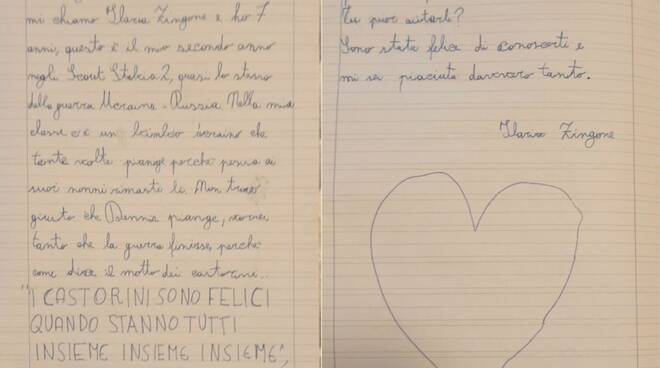 mi chiamo Ilaria Zingone e ho 7
anni, questo è il mio secondo anno
negli Scout Stalcia 2, quasi lo stesso
della guerra Ucraina - Russia. Nella mia
classe c'è un bimbo ucraino che
tante volte piange perché pensa ai
suoi nonni rimasti là. Non trovo
giusto che Dennis piange, vorrei
tanto che la guerra finisse, perché
come dice il motto dei castorini..
"I CASTORINI SONO FELICI
QUANDO STANNO TUTTI
INSIEME INSIEME INSIEME",
Tu puoi aiutarli?
Sono stata felice di conoscerti e
mi sei piaciuta davvero tanto.
Ilaria Zingone